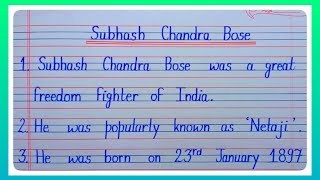 Subhash Chandra Bose
1. Subhash Chandra Bose was a great
freedom fighter of India.
2. He was popularly known as 'Netaji'.
3. He was born on 23rd January 1897